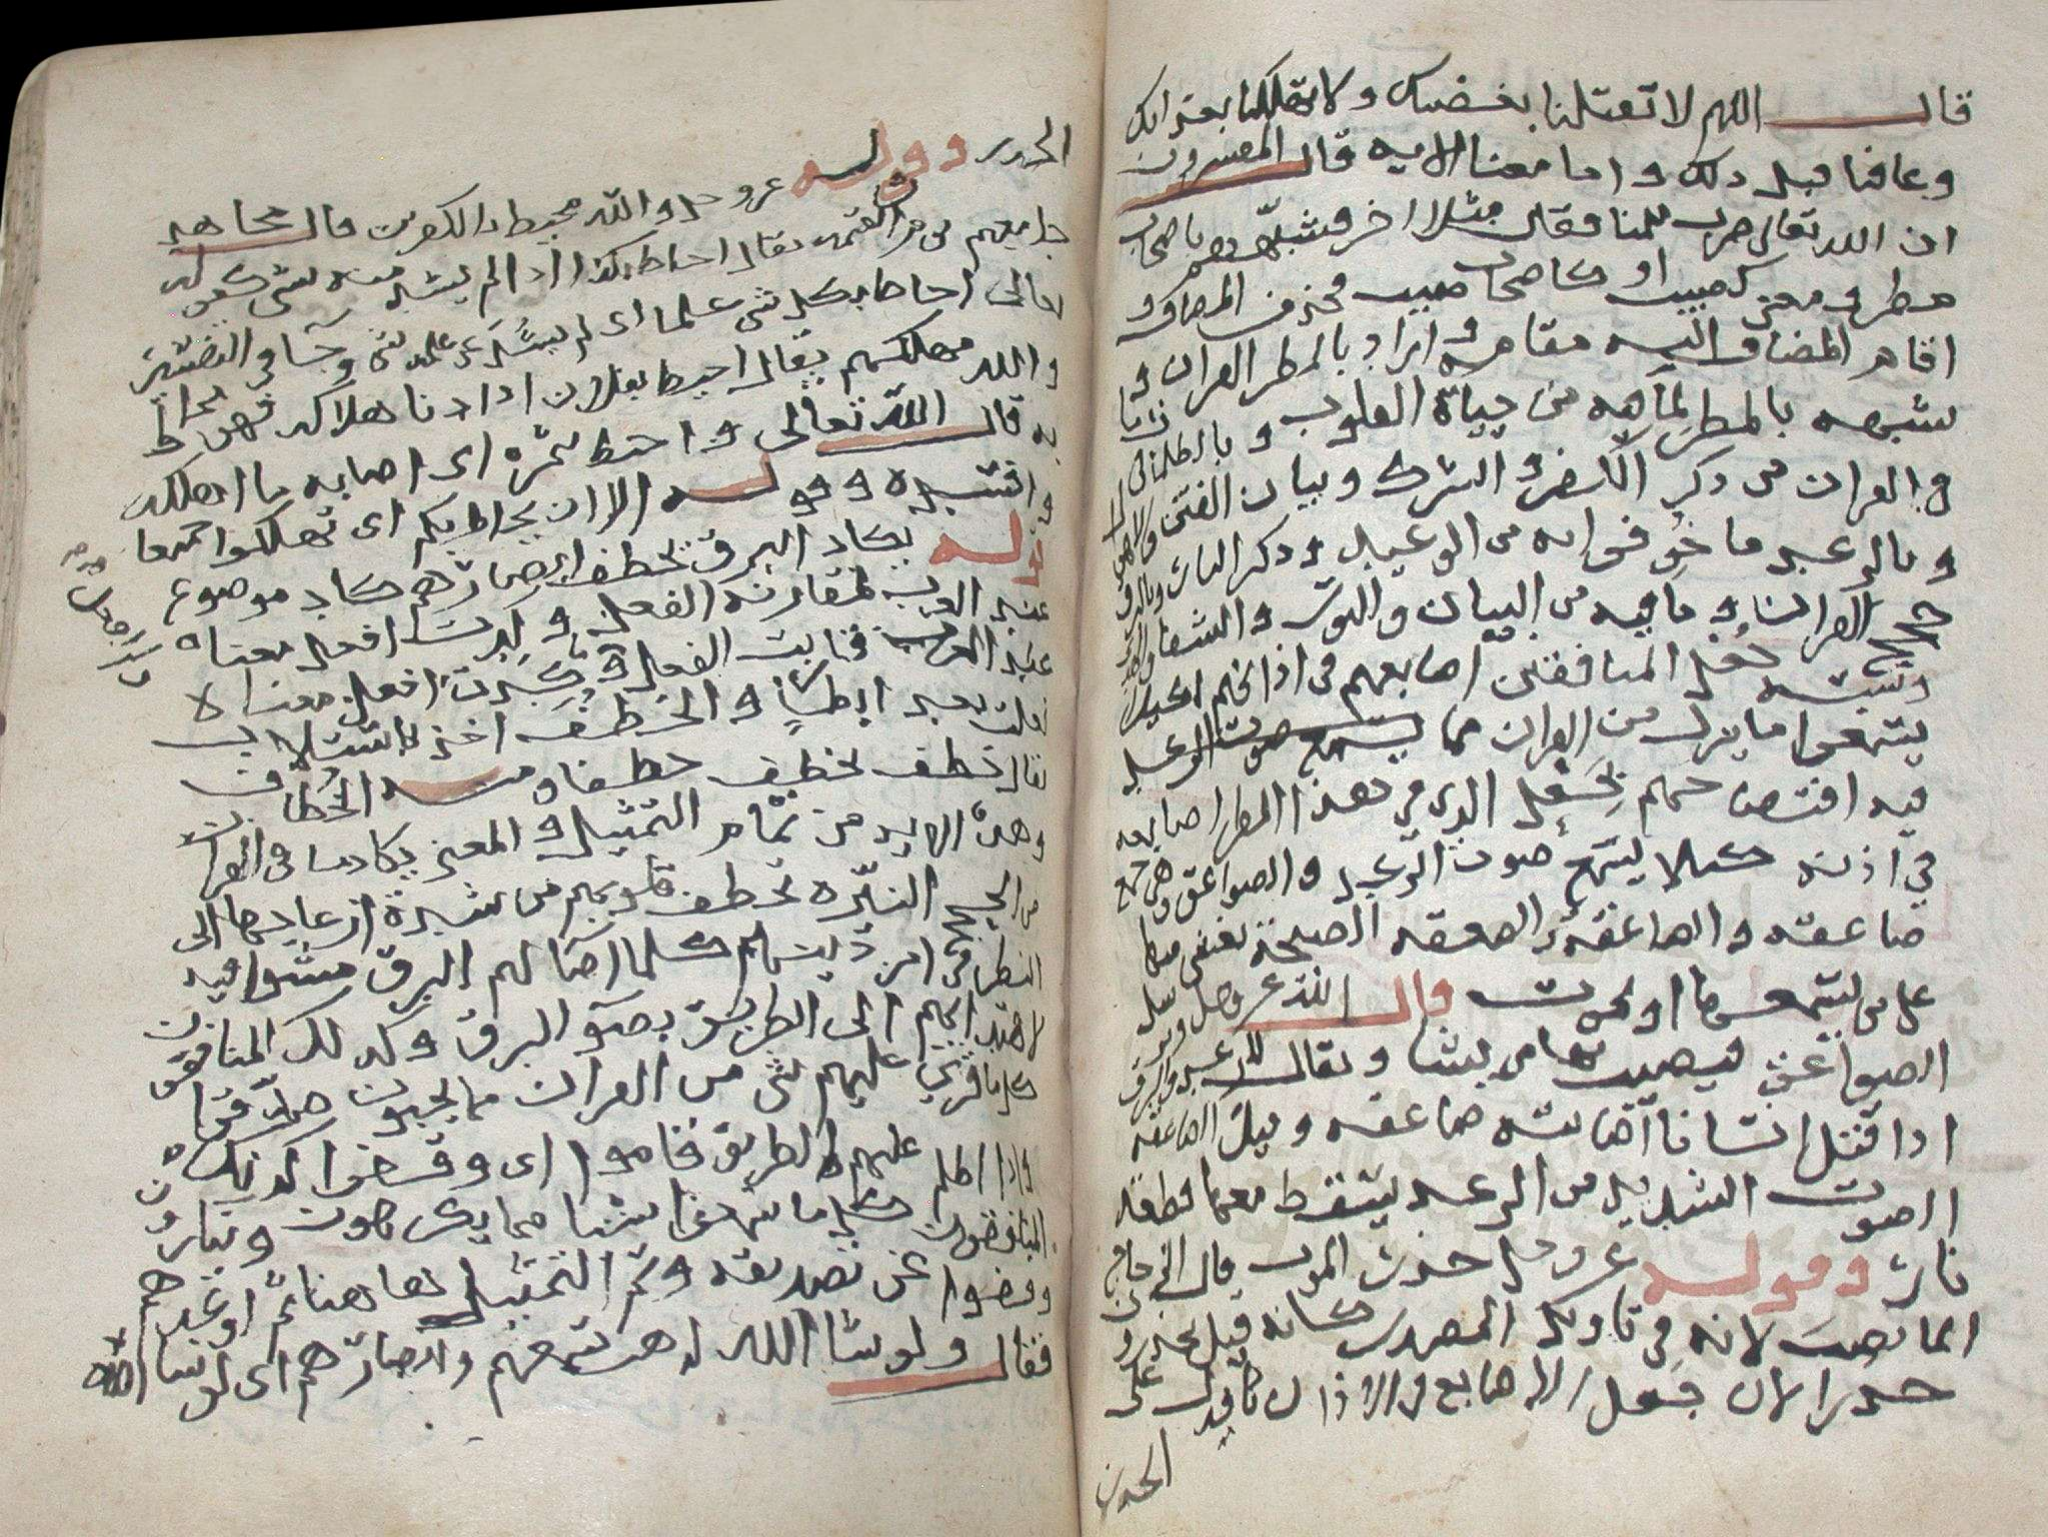 قال اللهم لا تقتلنا بغضبك ولا تهلكنا بعذابك
وعافنا قبل ذلك واما معنا الايه قال المفسرون
ان الله تعالى ضرب للمنافقين مثلا اخر وشبههم باصحاب
مطر ومعنى كصيب او كاصحاب صيب فحذف المضاف و
اقام المضاف اليه مقامه و اراد بالمطر القران و
شبهه بالمطر لما فيه من حياة القلوب وبالظلمات
في القران من ذكر الكفر والشرك وبيان الفتن والاهوال
وبالرعد ما خوفوا به من الوعيد وذكر النار وبالبرق
حجج القران وما فيه من البيان والنور والشفا
وشبه جعل المنافقين اصابعهم في اذانهم لكيلا
يسمعوا ما ينزل من القران مما
فيه افتضاحهم بجعل الذي في هذا المطر اصابعه
في اذنه كيلا يسمع صوت الرعد والصواعق وهي جمع
صاعقه والصاعقه والصعقه الصيحة يغشى منها
على من يسمعها او يموت قال الله عز وجل ويرسل
الصواعق فيصيب بها من يشا ويقال للرعد والبرق
اذا قتل انسانا اصابته صاعقه وقيل الصاعقه
الصوت الشديد من الرعد يسقط معها قطعه
نار وقوله عز وجل حذر الموت قال الزجاج
انما نصب لانه في تاويل المصدر كانه قيل يحذرون
حذرا لان جعل الاصابع في الاذان يدل على
الحذر
الحذر وقوله عز وجل والله محيط بالكفرين قال مجاهد
جامعهم يوم القيمه يقال احاط بكذا اذا لم يشذ منه شي كقوله
تعالى احاط بكل شي علما اى لم يشذ عن علمه شي وجا في التفسير
والله مهلكهم يقال احيط بفلان اذا دنا هلاكه فهو محاط
به قال الله تعالى واحيط بثمره اى اصابه ما اهلكه
وافسده وقوله الا ان يحاط بكم اى تهلكوا جميعا
قوله يكاد البرق يخطف ابصارهم كاد موضوع
عند العرب لمقاربة الفعل و كدت افعل معناه
عند العرب قاربت الفعل وما كدت افعل معناه
فعلت بعد ابطاء والخطف اخذ باستلاب
يقال خطف يخطف خطفا ومنه الخطاف
وهذه الايه من تمام التمثيل والمعنى يكاد ما في القران
من الحجج النيره تخطف قلوبهم من شدة ازعاجها الى
النظر في امر دينهم كلما اضا لهم البرق مشوا فيه
لاهتدائهم الى الطريق بضو البرق وكذلك المنافقون
كلما قري عليهم شي من القران مما يحبون صدقوا
واذا اظلم عليهم الطريق قاموا اى وقفوا كذلك
المنافقون كلما سمعوا شيا مما يكرهون
وقفوا عن تصديقه وتم التمثيل هاهنا ثم اوعدهم
فقال ولو شا الله لذهب بسمعهم وابصارهم اى لو شا الله